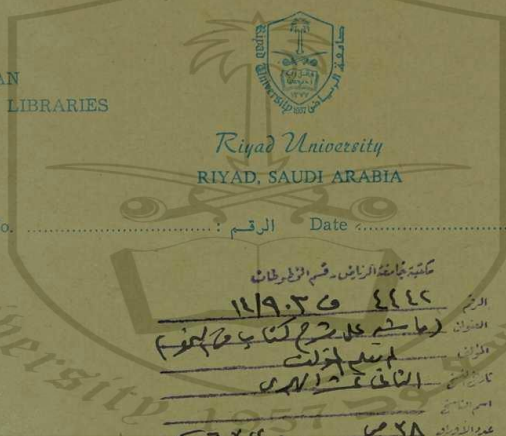 AN
LIBRARIES
Riyad University
جامعة الرياض
Riyad University
RIYAD, SAUDI ARABIA
No. الرقم : Date
مكتبة جامعة الرياض - قسم المخطوطات
الرقم ٤٤٤٢ ف ١٤/٩٠٣
العنوان (حاشية على شرح كتاب في النحو)
المؤلف لم يعلم المؤلف
تاريخ النسخ الثاني عشر الهجري
اسم الناسخ
عدد الأوراق ٣٨ ص
ersity 1957